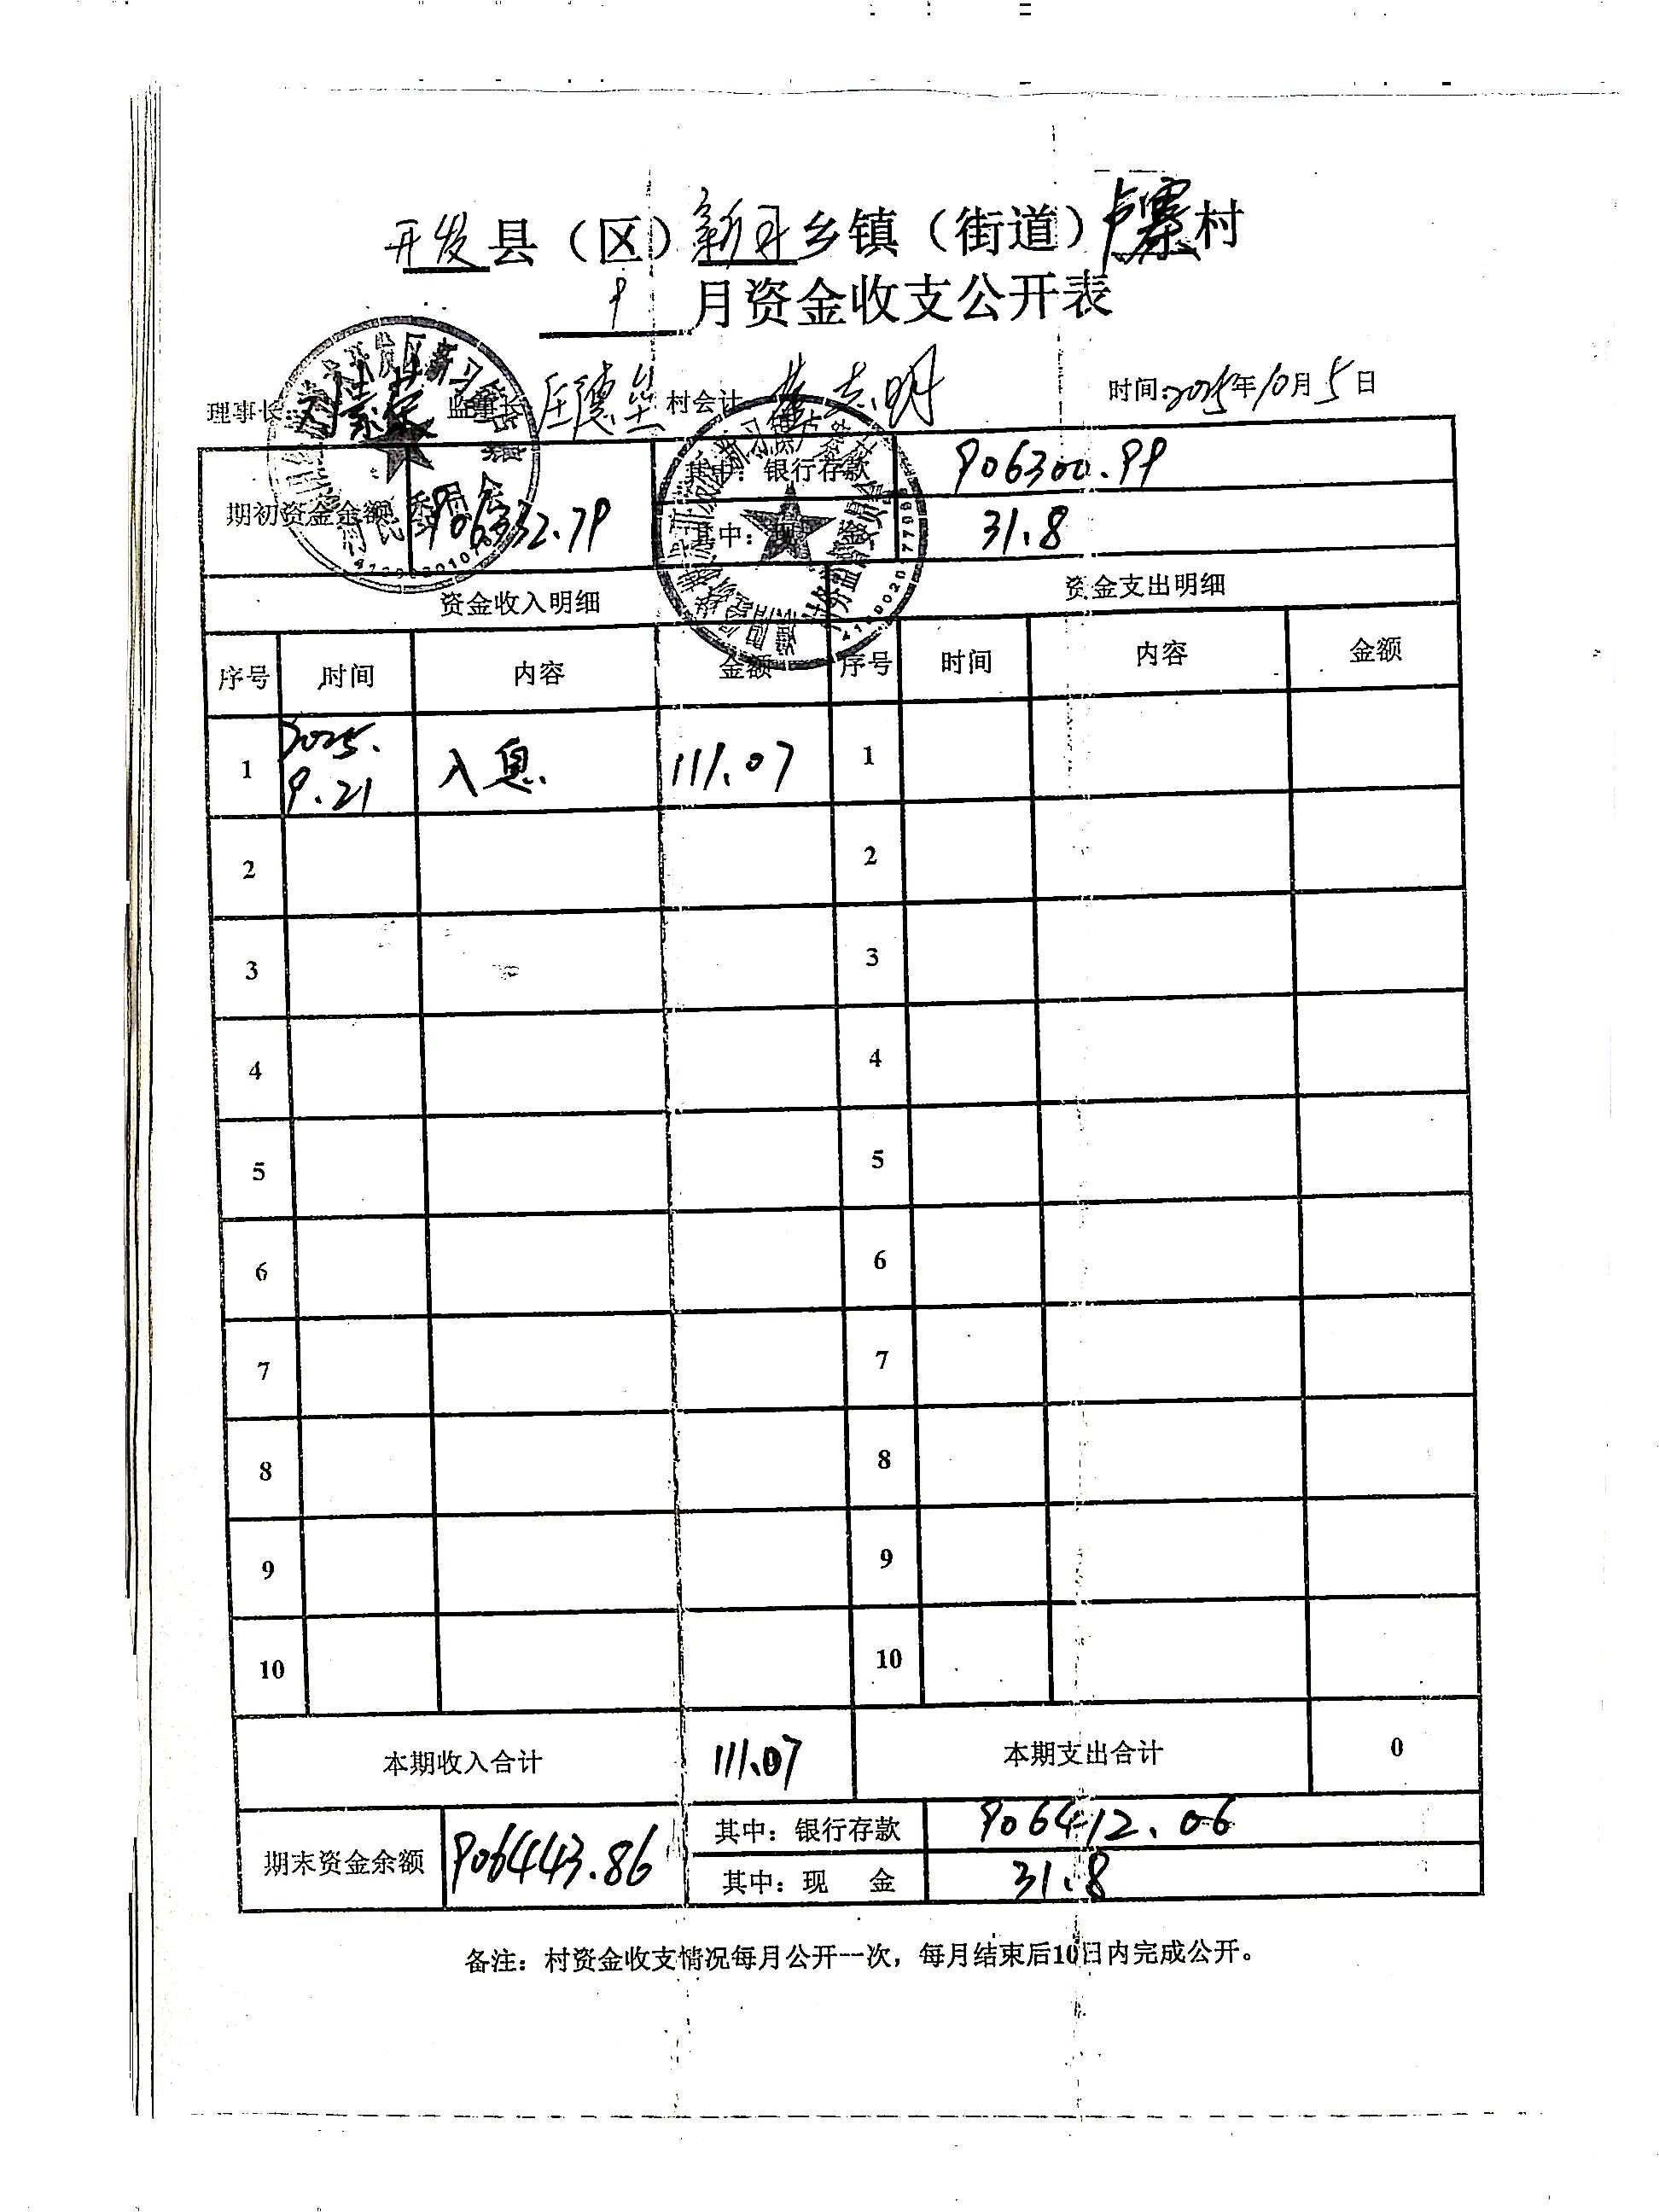 开发县（区）新习乡镇（街道）卢寨村
9月资金收支公开表
理事长 监事长 村会计 时间：2025年10月5日
期初资金余额 906332.79 其中：银行存款 906300.99
其中：现 金 31.8
资金收入明细 资金支出明细
序号 时间 内容 金额 序号 时间 内容 金额
1 2025.9.21 入息 111.07 1
2 2
3 3
4 4
5 5
6 6
7 7
8 8
9 9
10 10
本期收入合计 111.07 本期支出合计 0
期末资金余额 906443.86 其中：银行存款 906412.06
其中：现 金 31.8
备注：村资金收支情况每月公开一次，每月结束后10日内完成公开。